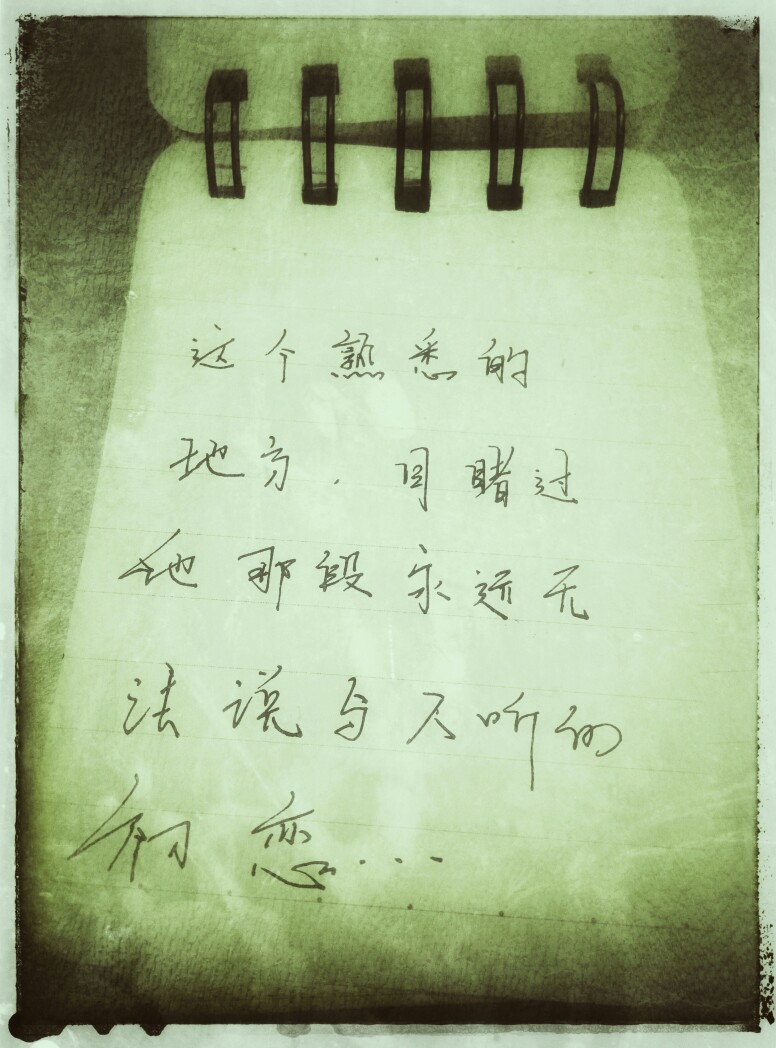 这个熟悉的
地方，目睹过
他那段永远无
法说与人听的
初恋...